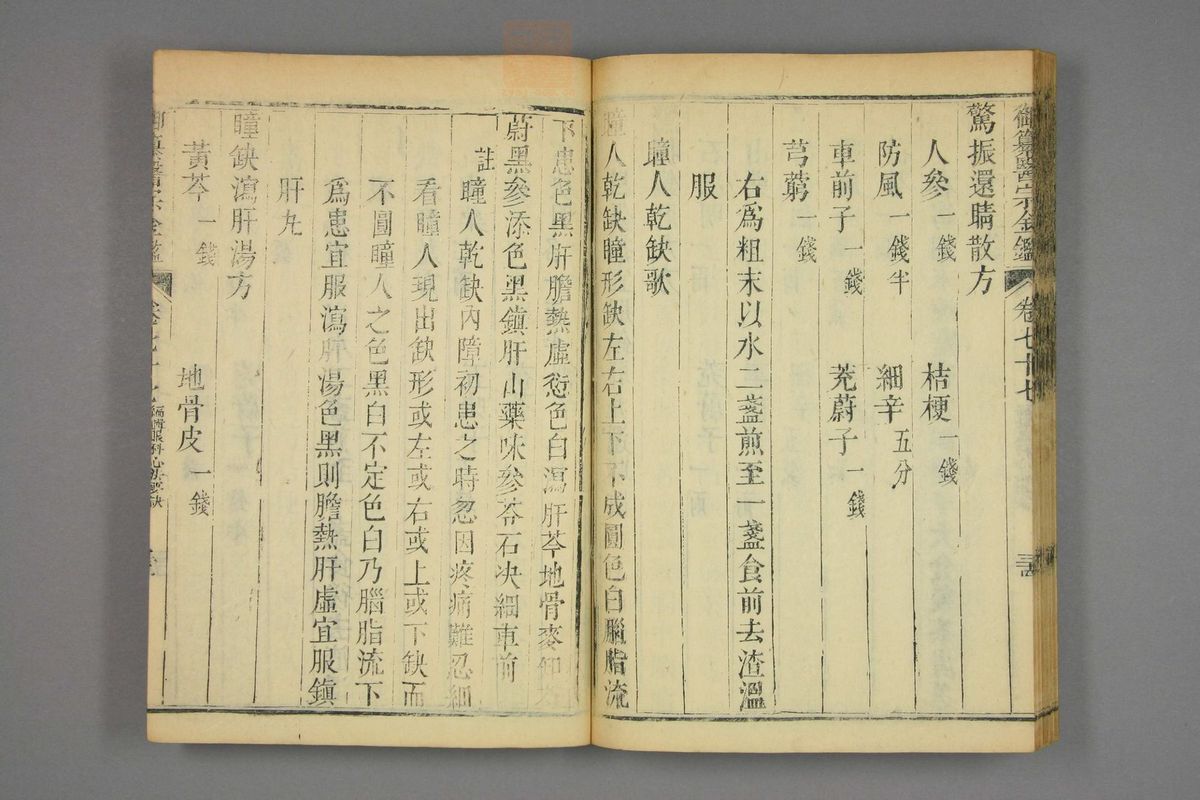 御纂醫宗金鑑 卷七十七
驚振還睛散方
人參一錢 桔梗一錢
防風一錢半 細辛五分
車前子一錢 茺蔚子一錢
芎藭一錢
右爲粗末以水二盞煎至一盞食前去渣溫
服
瞳人乾缺歌
瞳人乾缺瞳形缺左右上下不成圓色白腦脂流
下患色黑肝膽熱虛愆色白瀉肝芩地骨麥知
蔚黑參添色黑鎮肝山藥味參苓石決細車前
註瞳人乾缺內障初患之時忽因疼痛難忍細
看瞳人現出缺形或左或右或上或下缺而
不圓瞳人之色黑白不定色白乃腦脂流下
爲患宜服瀉肝湯色黑則膽熱肝虛宜服鎮
肝丸
瞳缺瀉肝湯方
黃芩一錢 地骨皮一錢
御纂醫宗金鑑 卷七十七 編輯眼科心法要訣